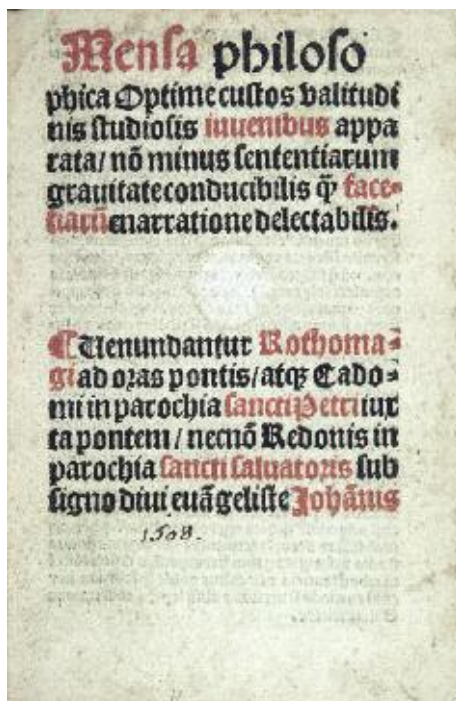 Mensa philoso
phica Optime custos valitudi
nis studiosis iuuenibus appa
rata/ nõ minus sententiarum
grauitate conducibilis ꝙ̃ face-
tiarũ enarratione delectabilis.
¶ Uenundantur Rothoma-
gi ad oras pontis/ atqꝫ Cado-
mi in parochia sancti Petri iux
ta pontem/ necnõ Redonis in
parochia sancti saluatoris sub
signo diui euãgeliste Johãnis
1508.